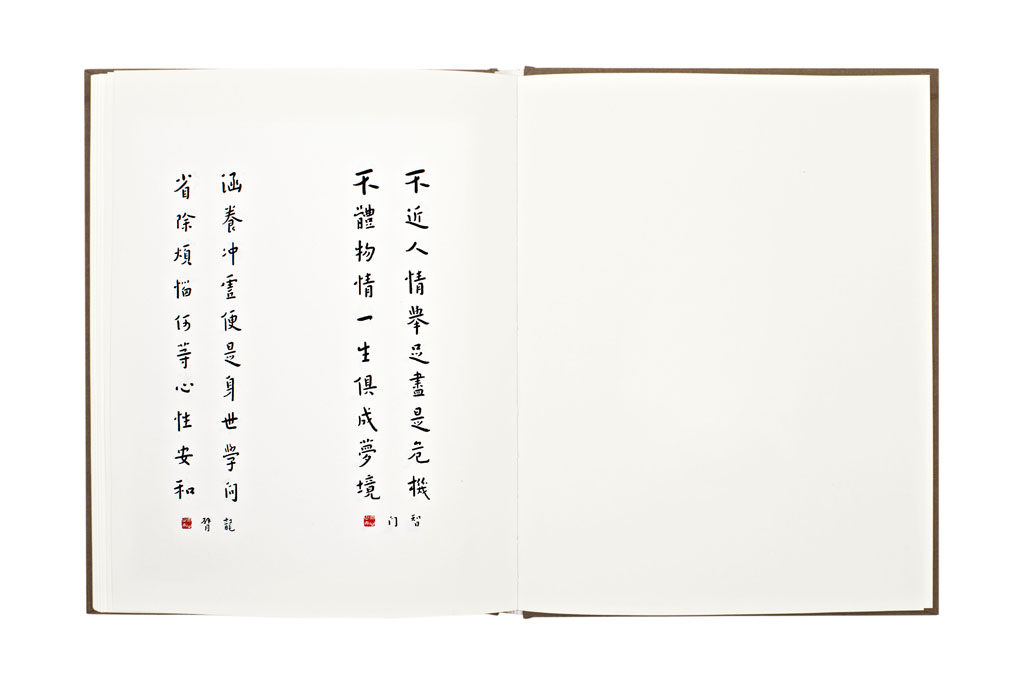 不近人情舉足盡是危機
不體物情一生俱成夢境
智
门
涵養冲虚便是身世学问
省除煩惱何等心性安和
龍